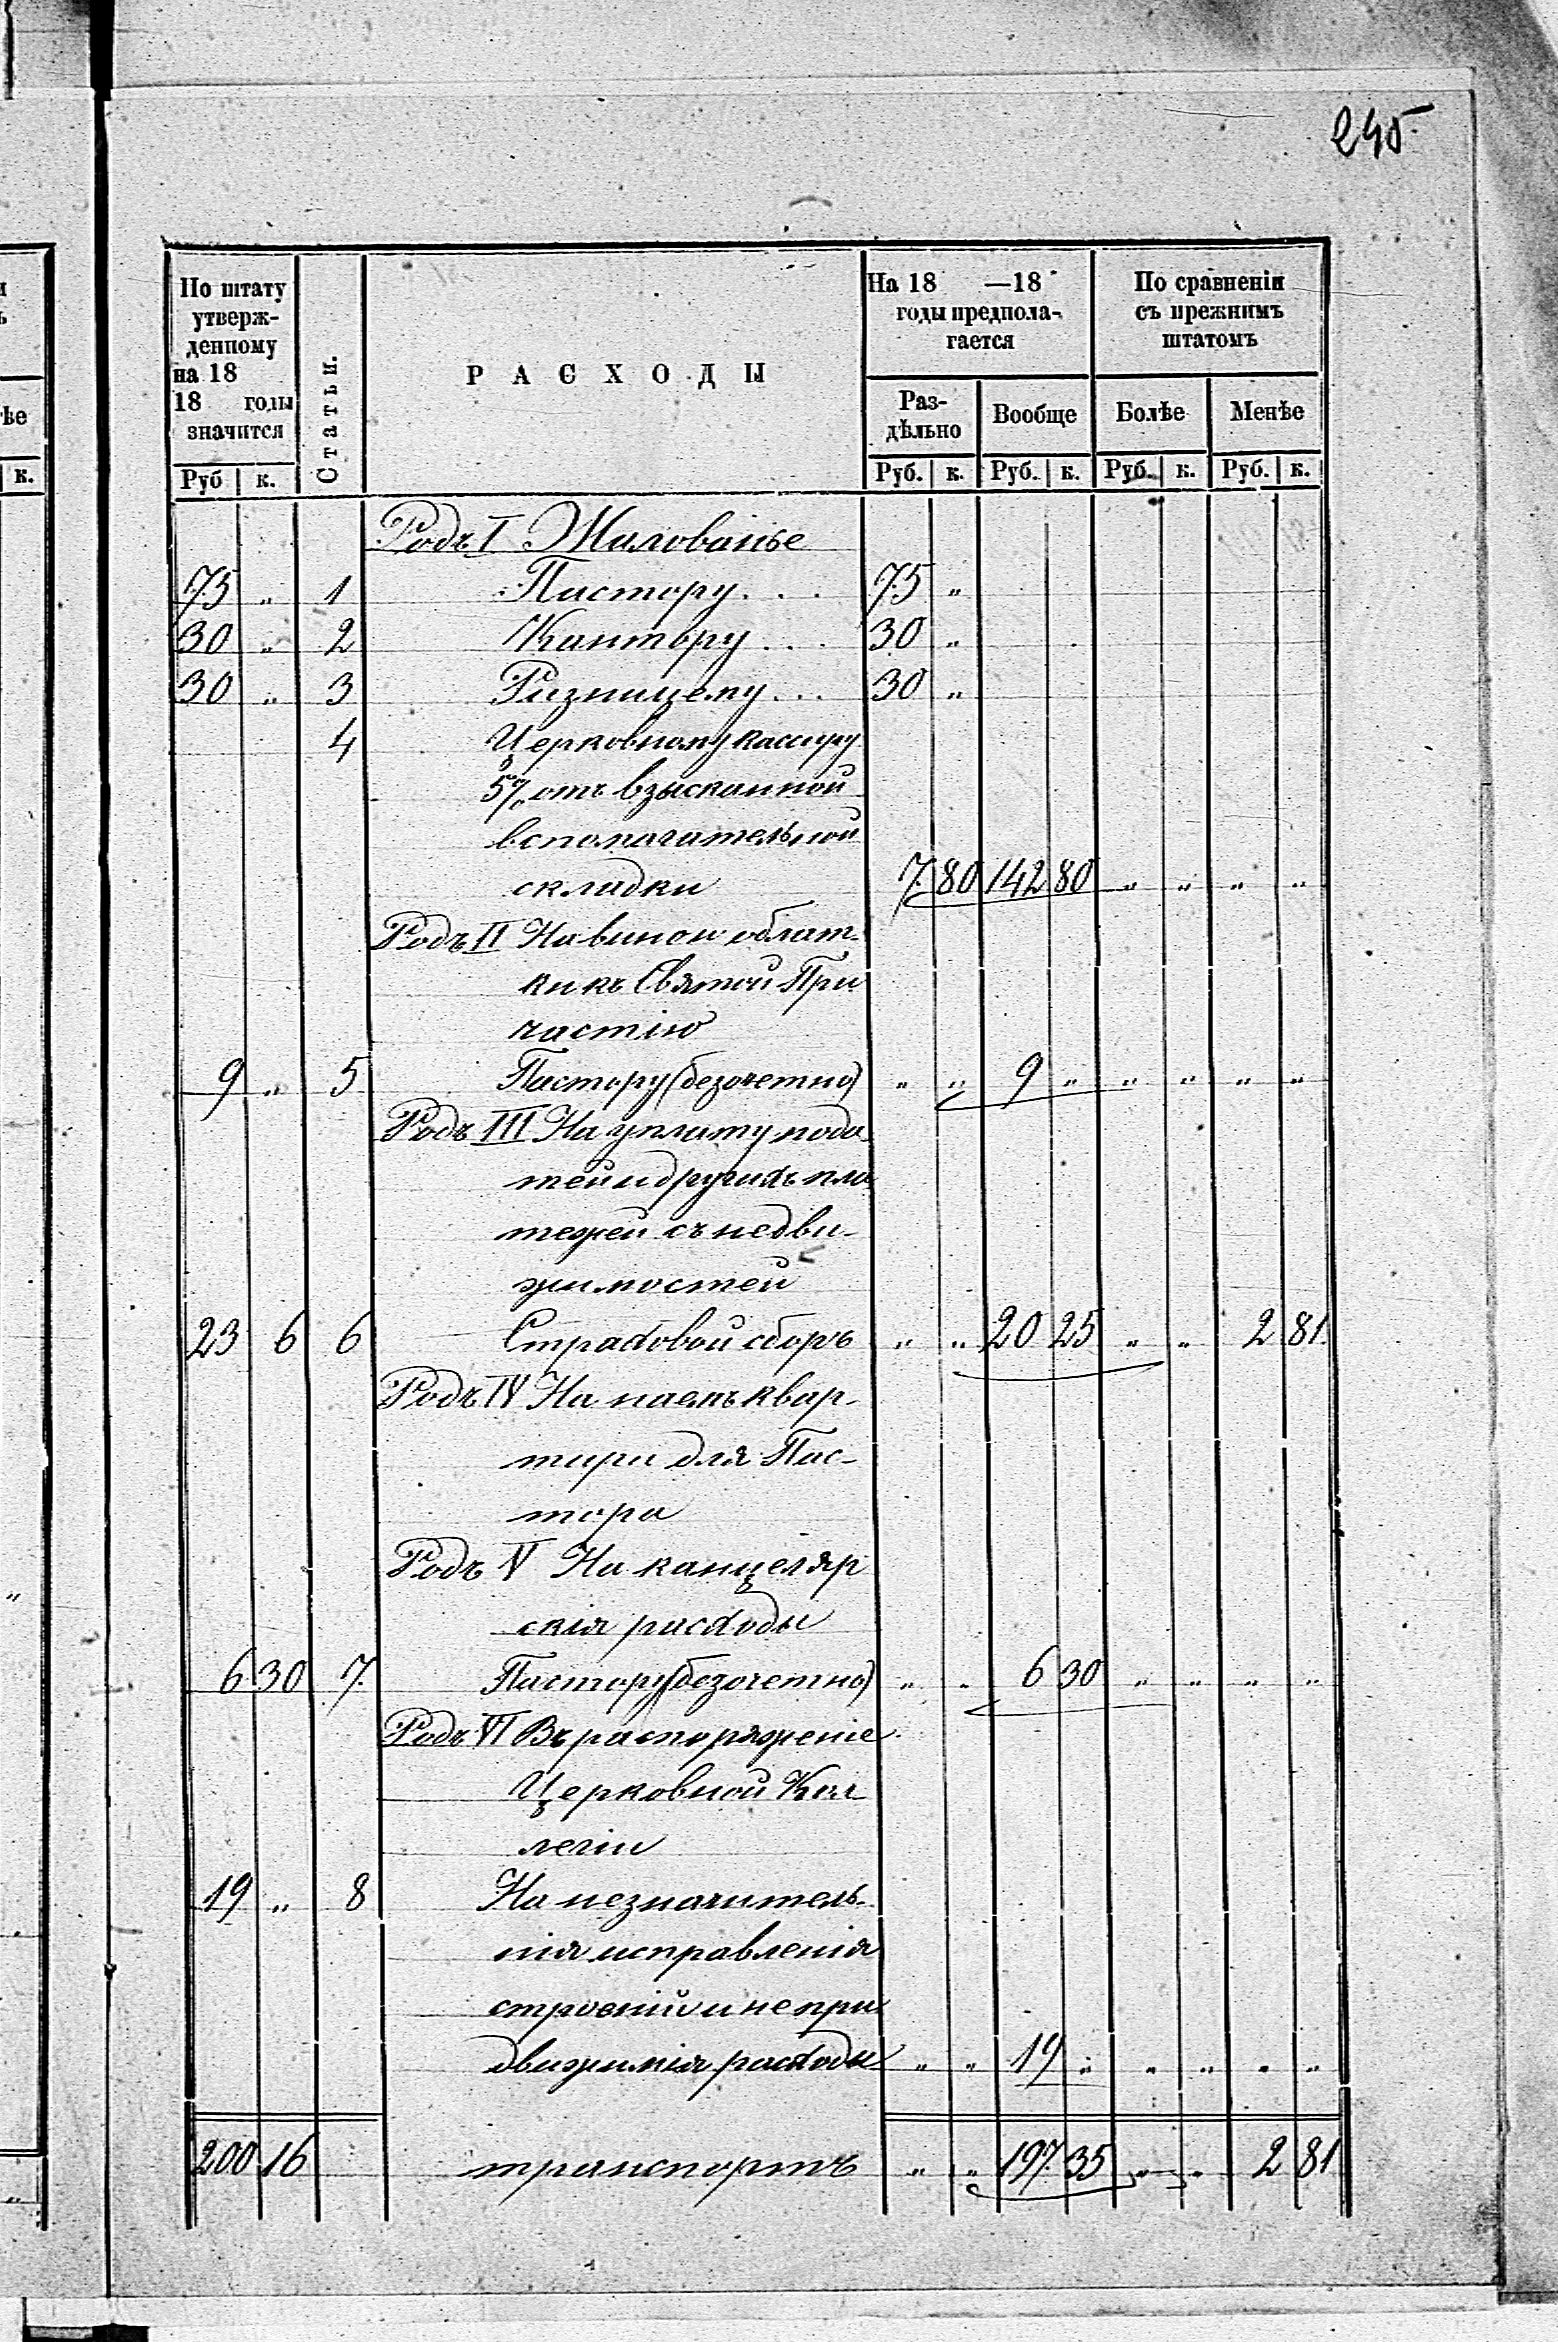 245.
По штату утвержденному на 18 18 годы значится
Статьи.
РАСХОДЫ
На 18 —18 годы предполагается
По сравненіи съ прежнимъ штатомъ
Раздѣльно Вообще Болѣе Менѣе
Руб к. Руб. к. Руб. к. Руб. к. Руб. к.
Родъ I Жалованье
75 „ 1 Пастору . . . 75 „
30 „ 2 Кантору . . . 30 „
30 „ 3 Ризничему . . . 30 „
4 Церковному кассиру
5% отъ взысканной
вспомагательной
складки 7 80 142 80 „ „ „ „
Родъ II На вино и облат-
ки къ Святой При
частію
9 „ 5 Пастору (безочетно) „ „ 9 „ „ „ „ „
Родъ III На уплату пода
тей и другихъ пла
тежей съ недви-
жимостей
23 6 6 Страховой сборъ „ „ 20 25 „ „ 2 81.
Родъ IV На наемъ квар-
тири для Пас-
тора
Родъ V На канцеляр
скія расходы
6 30 7. Пастору (безочетно) „ „ 6 30 „ „ „ „
Родъ VI Въ распоряженіе
Церковной Кол
легіи
19 „ 8 На незначитель-
нія исправленія
строеній и непри
движимія расходы „ „ 19 „ „ „ „ „
200 16 транспортъ „ „ 197 35 „ „ 2 81